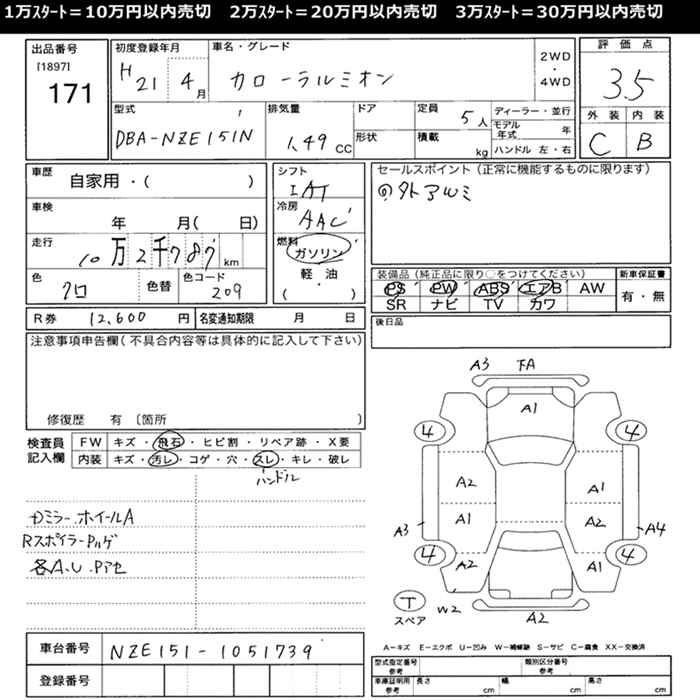 1万スタート＝10万円以内売切　2万スタート＝20万円以内売切　3万スタート＝30万円以内売切
出品番号
[1897]
171
初度登録年月
H21 4月
車名・グレード
カローラルミオン
2WD
・
4WD
評価点
3.5
型式
DBA-NZE151N
排気量
1.49 CC
ドア
形状
定員
5人
積載
kg
ディーラー・並行
モデル年式 年
ハンドル 左・右
外装 内装
C B
車歴
自家用・( )
車検
年 月( 日)
走行
10万2千787km
色
クロ
色替
色コード
209
シフト
IAT
冷房
AAC
燃料
ガソリン
・
軽油
・
( )
セールスポイント（正常に機能するものに限ります）
外アルミ
装備品（純正品に限り○をつけてください）
PS PW ABS エアB AW
SR ナビ TV カワ
新車保証書
有・無
R券 12,600円
名変通知期限 月 日
後日品
注意事項申告欄（不具合内容等は具体的に記入して下さい）
修復歴 有〔箇所 〕
検査員記入欄
FW キズ・飛石・ヒビ割・リペア跡・X要
内装 キズ・汚レ・コゲ・穴・スレ・キレ・破レ
ハンドル
Dミラー.ホイールA
RスポイラーPハゲ
各A.U.Pアセ
A3 下A
A1
4 4
A2 A1
A1 A2
A3 A4
4 4
A2 A1
T
スペア
W2
A2
車台番号
NZE151-1051739
登録番号
A－キズ E－エクボ U－凹み W－補修跡 S－サビ C－腐食 XX－交換済
型式指定番号
参考
類別区分番号
参考
車庫証明用
参考
長さ cm 幅 cm 高さ cm